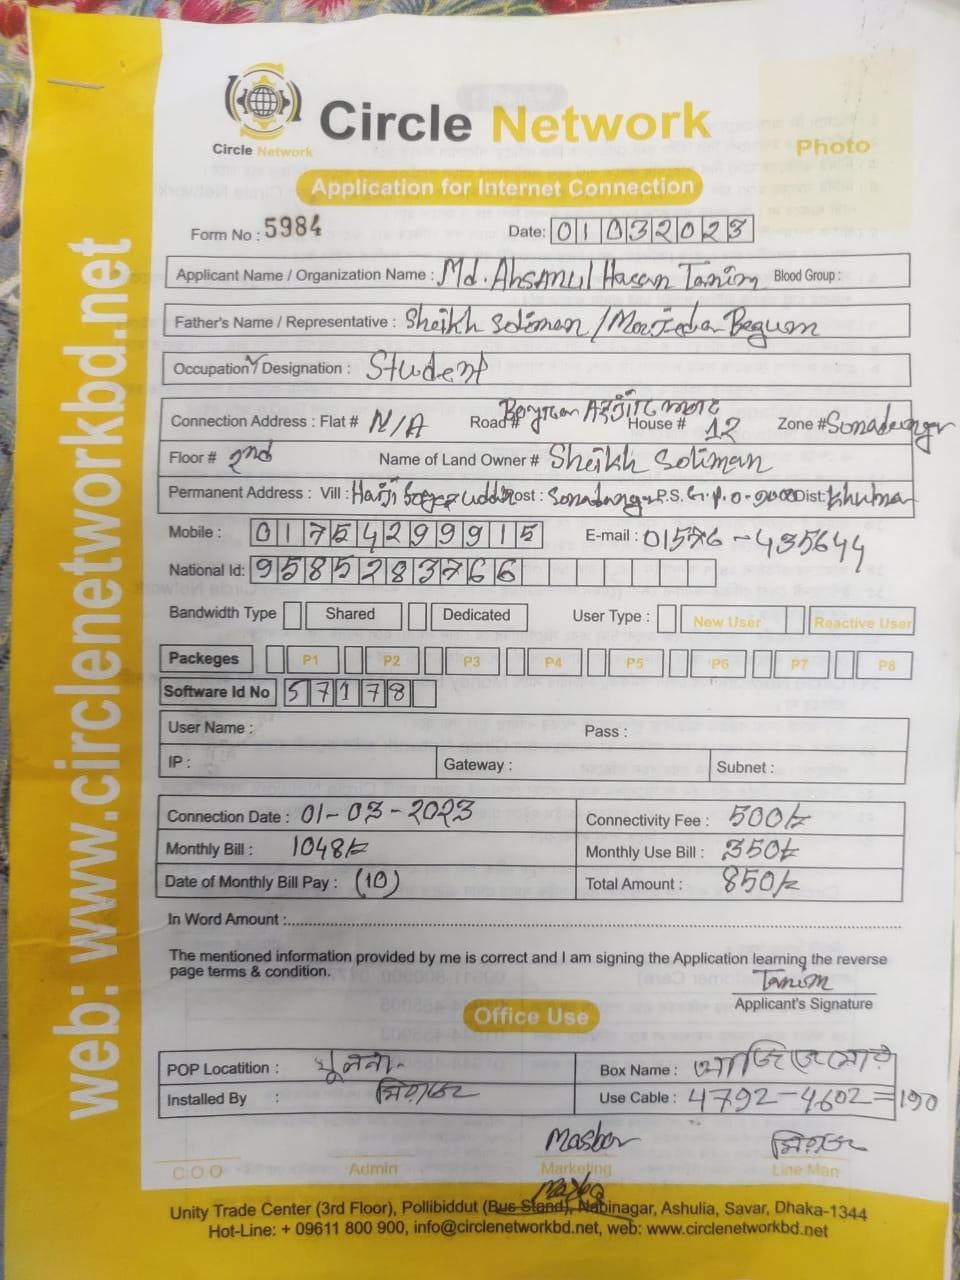 Circle Network
Circle Network
Photo
Application for Internet Connection
Form No : 5984
Date: 01032023
Applicant Name / Organization Name : Md. Ahsanul Hasan Tanim Blood Group :
Father's Name / Representative : Sheikh Soliman / Begum
Occupation / Designation : Student
Connection Address : Flat # N/A Road # House # 12 Zone #
Floor # 2nd Name of Land Owner # Sheikh Soliman
Permanent Address : Vill : Post : P.S. Dist: Khulna
Mobile : 01754299915 E-mail : 01576-435644
National Id: 9585283766
Bandwidth Type Shared Dedicated User Type : New User Reactive User
Packeges P1 P2 P3 P4 P5 P6 P7 P8
Software Id No 57178
User Name : Pass :
IP : Gateway : Subnet :
Connection Date : 01-03-2023 Connectivity Fee : 500/-
Monthly Bill : 1048/- Monthly Use Bill : 350/-
Date of Monthly Bill Pay : (10) Total Amount : 850/-
In Word Amount :
The mentioned information provided by me is correct and I am signing the Application learning the reverse
page terms & condition.
Tanim
Applicant's Signature
Office Use
POP Locatition : Box Name :
Installed By : Use Cable : 4792-4602=190
C.O.O Admin Marketing Line Man
Unity Trade Center (3rd Floor), Pollibiddut (Bus Stand), Nabinagar, Ashulia, Savar, Dhaka-1344
Hot-Line: + 09611 800 900, info@circlenetworkbd.net, web: www.circlenetworkbd.net
web: www.circlenetworkbd.net